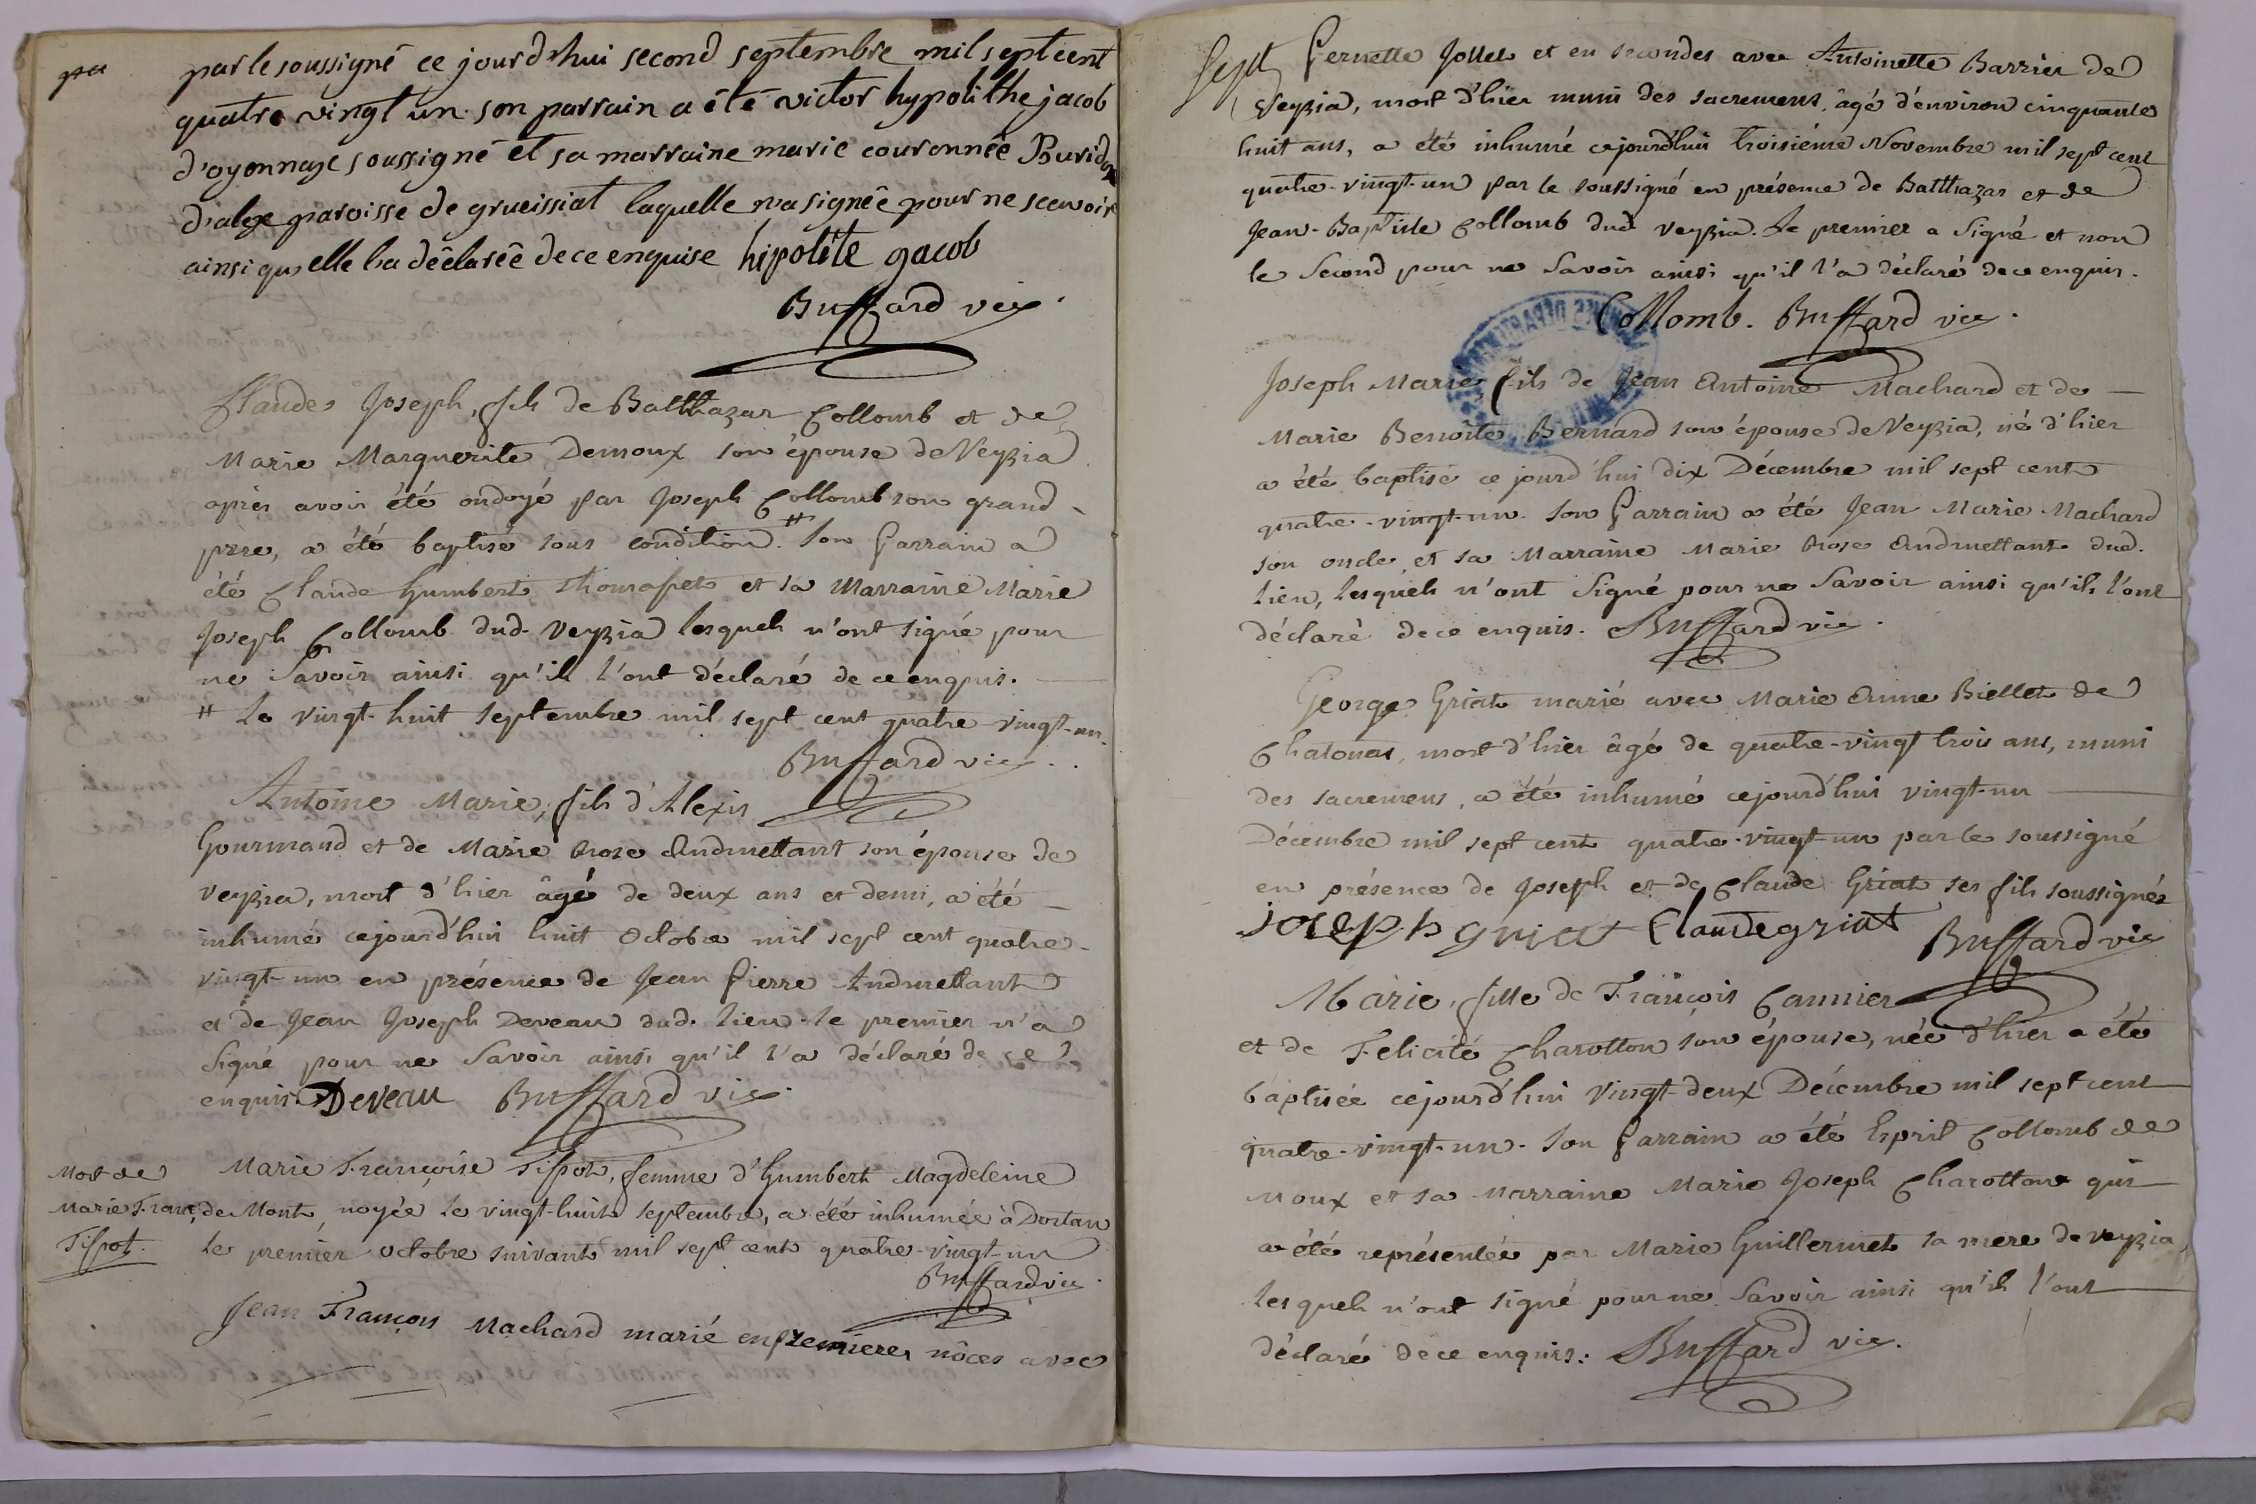 par le soussigné ce jourd'hui second septembre mil sept cent
quatre vingt un. son parrain a été victor hypolithe jacob
d'oyonnax soussigné et sa marraine marie couronnée Buridon
d'alex paroisse de grueissiat laquelle n'a signée pour ne scavoir
ainsi qu'elle l'a déclarée de ce enquise hipolite gacob
Buffard vic.
Claude Joseph, fils de Balthazar Collomb et de
Marie Marguerite Demoux son épouse de Veyzia
après avoir été ondoyé par Joseph Collomb son grand
pere, a été baptisé sous condition. # Son Parrain a
été Claude humbert Thomasset et sa Marraine Marie
Joseph Collomb dud. Veyzia lesquels n'ont signé pour
ne Savoir ainsi qu'ils l'ont déclaré de ce enquis.
# Le vingt-huit septembre mil sept cent quatre vingt-un.
Buffard vic.
Antoine Marie, fils d'Alexis
Gourmand et de Marie Rose Andmettant son épouse de
veyzia, mort d'hier âgé de deux ans et demi, a été
inhumé cejourd'hui huit octobre mil sept cent quatre-
vingt-un en présence de Jean Pierre Andmettant
et de Jean Joseph Deveau dud. lieu. le premier n'a
Signé pour ne Savoir ainsi qu'il l'a déclaré de ce
enquis. Deveau Buffard vic.
Mort de
Marie Franç.
Tissot.
Marie Françoise Tissot, femme d'humbert Magdeleine
de Mont, noyée le vingt-huit septembre, a été inhumée à Dortan
le premier octobre suivant mil sept cent quatre-vingt-un
Buffard vic.
Jean François Machard marié en premieres nôces avec
Sept
Pernette Jollet et en secondes avec Antoinette Barrier de
Veyzia, mort d'hier muni des sacremens, âgé d'environ cinquante
huit ans, a été inhumé cejourd'hui troisiéme Novembre mil sept cent
quatre-vingt-un par le soussigné en présence de Balthazar et de
Jean-Baptiste Collomb dud. Veyzia. Le premier a Signé et non
le Second pour ne Savoir ainsi qu'il l'a déclaré de ce enquis.
Collomb. Buffard vic.
Joseph Marie fils de Jean Antoine Machard et de
Marie Benoite Bernard son épouse de Veyzia, né d'hier
a été baptisé ce jourd'hui dix Décembre mil sept cent
quatre-vingt-un. Son Parrain a été Jean Marie Machard
son oncle, et sa Marraine Marie Rose Andmettant dud.
Lieu, lesquels n'ont Signé pour ne Savoir ainsi qu'ils l'ont
déclaré de ce enquis. Buffard vic.
George Griat marié avec Marie Anne Biellet de
Chatonas, mort d'hier âgé de quatre-vingt trois ans, muni
des sacremens, a été inhumé cejourd'hui vingt-un
Décembre mil sept cent quatre-vingt-un par le soussigné
en présence de Joseph et de Claude Griat ses fils soussignés
joseph griat Claude griat Buffard vic
Marie, fille de François Cannier
et de Félicité Charotton son épouse, née d'hier a été
baptisée cejourd'hui vingt-deux Décembre mil sept cent
quatre-vingt-un. Son Parrain a été Esprit Collomb de
Moux et sa Marraine Marie Joseph Charotton qui
a été représentée par Marie Guillermet sa mere de veyzia,
lesquels n'ont signé pour ne Savoir ainsi qu'ils l'ont
déclaré de ce enquis. Buffard vic.